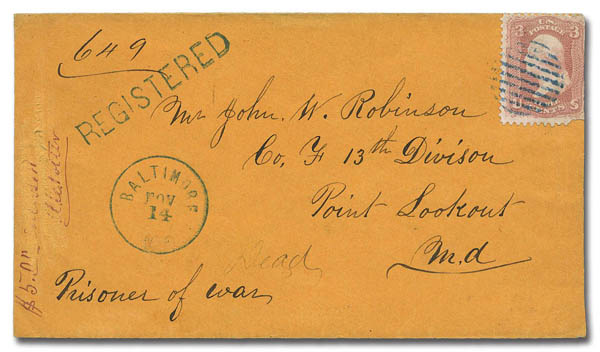 649
REGISTERED
3 U.S. POSTAGE 3
Mr John. W. Robinson
Co. F 13th Divison
Point Lookout
M.d
BALTIMORE
NOV
14
Dead
Prisoner of war
$5.00